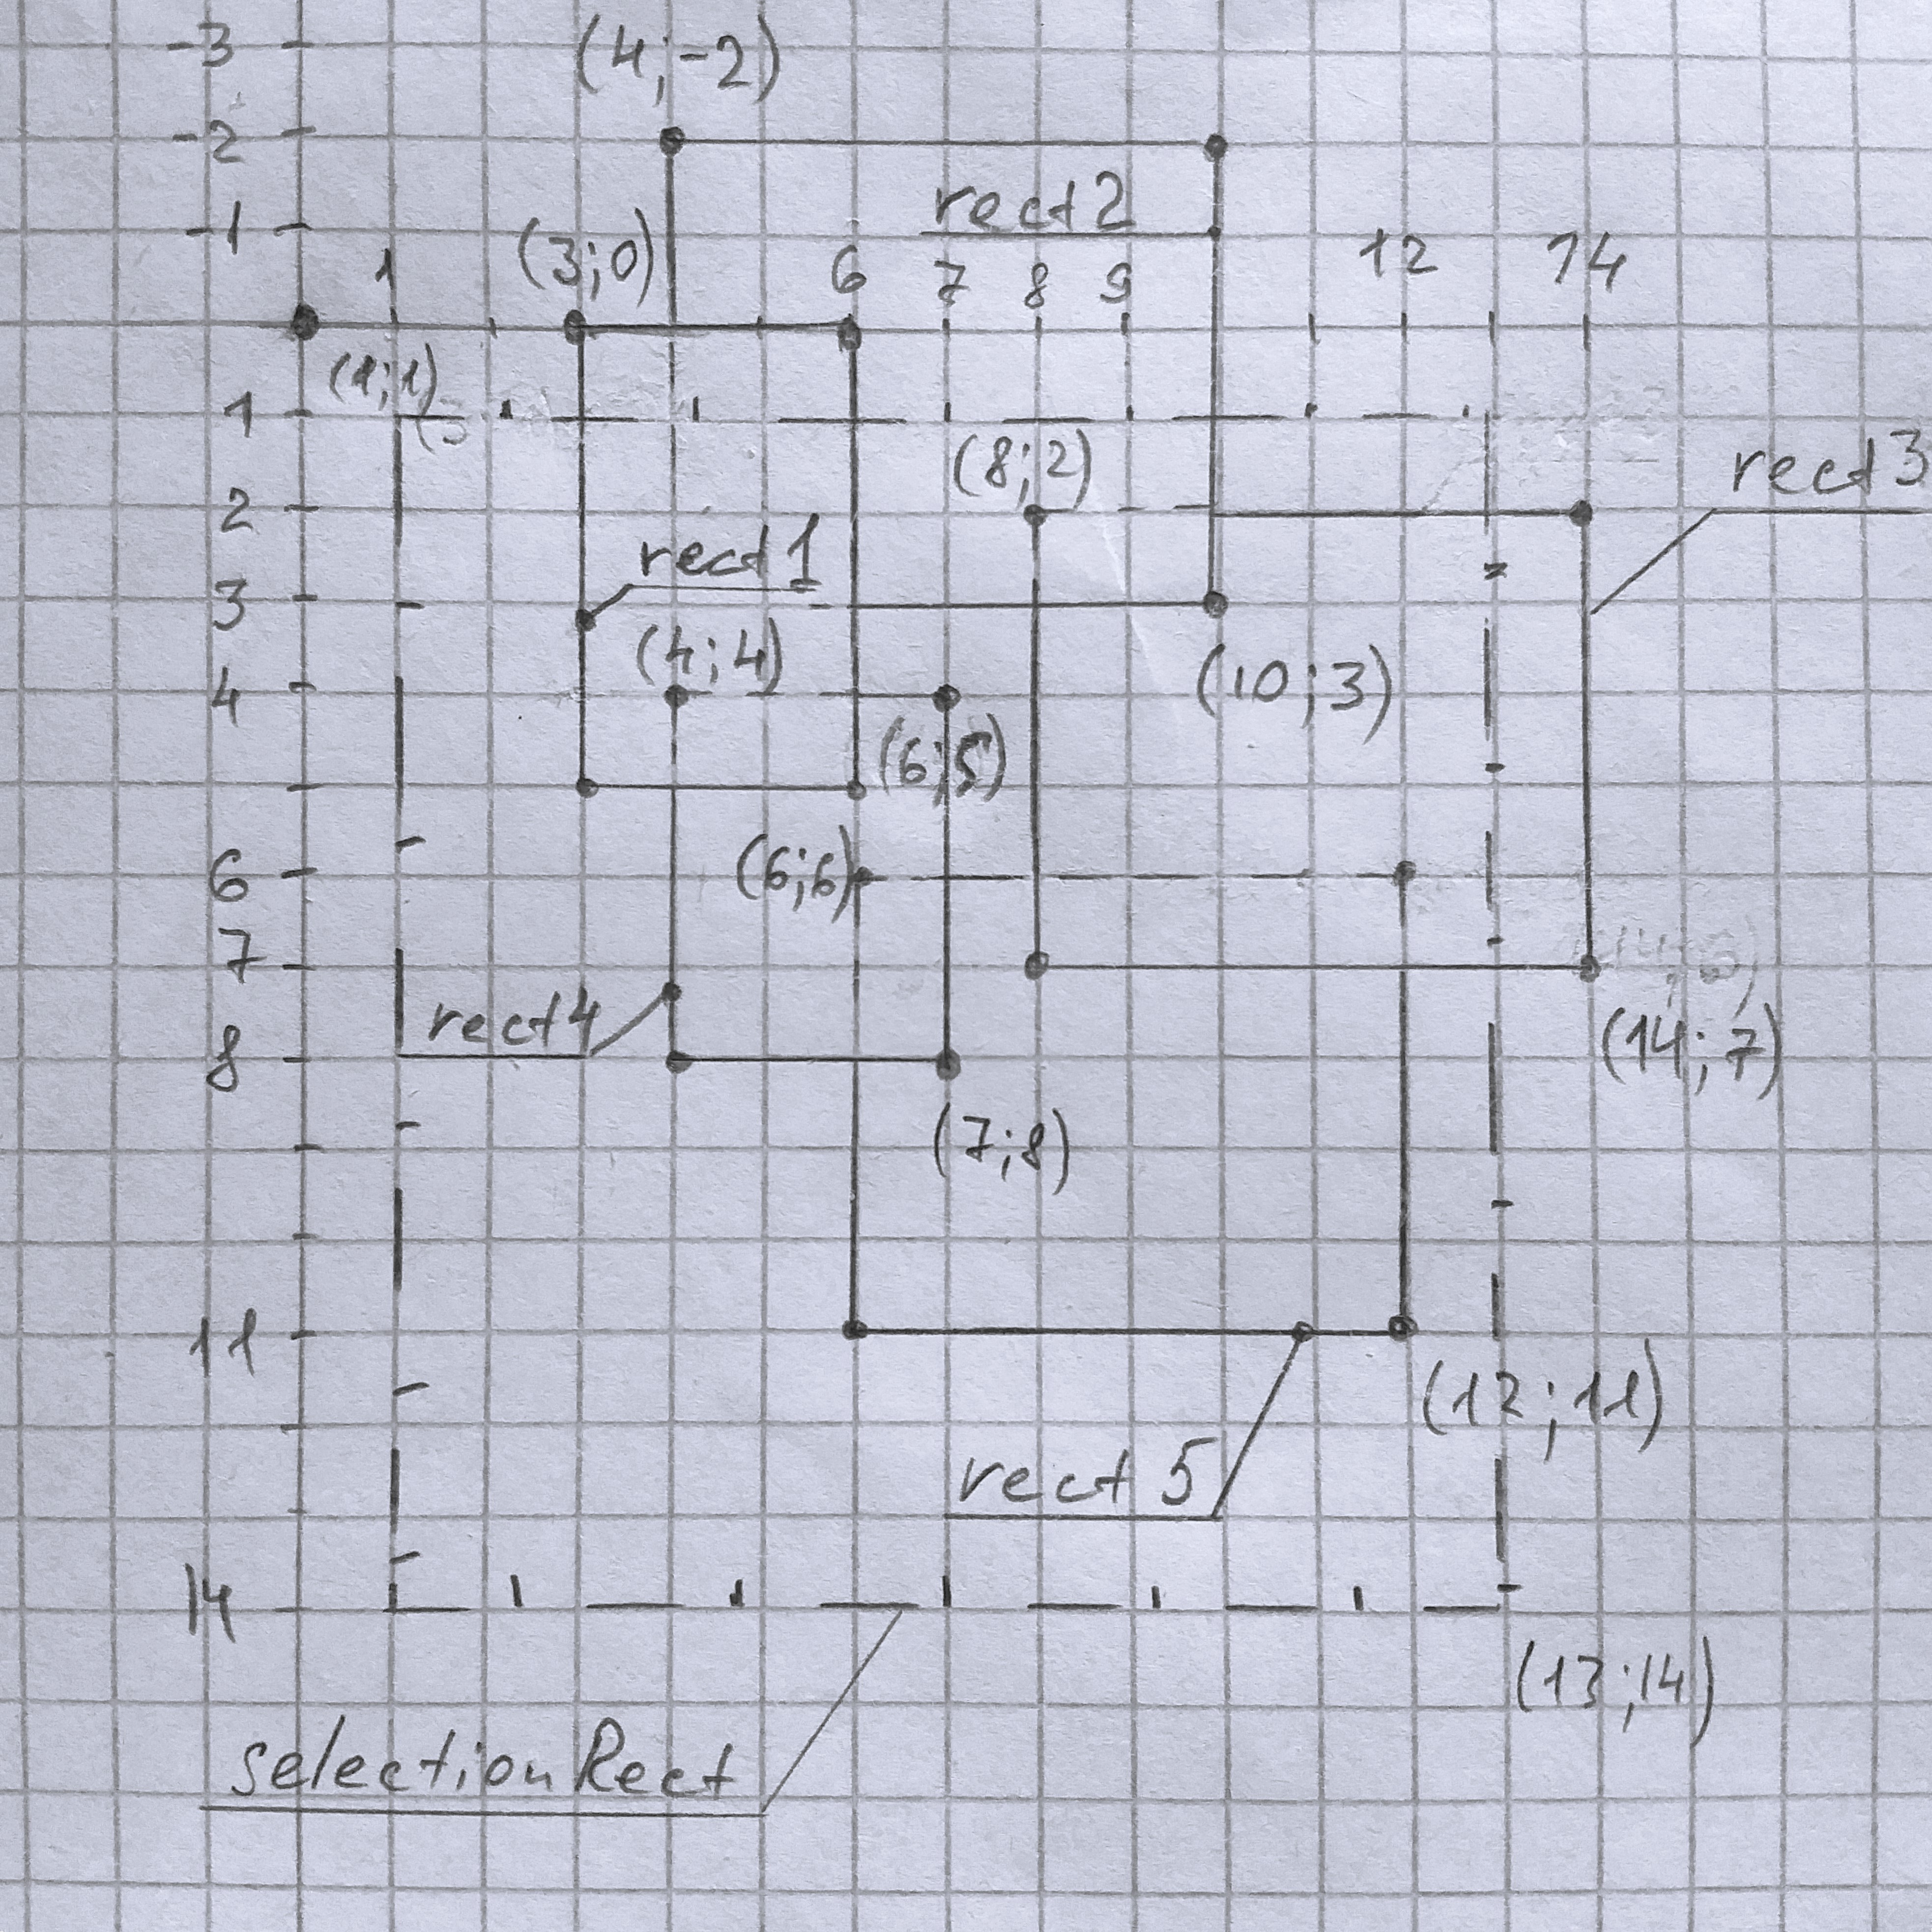 -3
(4;-2)
-2
rect2
-1
(3;0)
1
6
7
8
9
12
14
(1;1)
1
(8;2)
rect3
2
rect1
3
(4;4)
(10;3)
4
(6;5)
(6;6)
6
7
rect4
(14;7)
8
(7;8)
11
(12;11)
rect 5
14
(13;14)
selectionRect